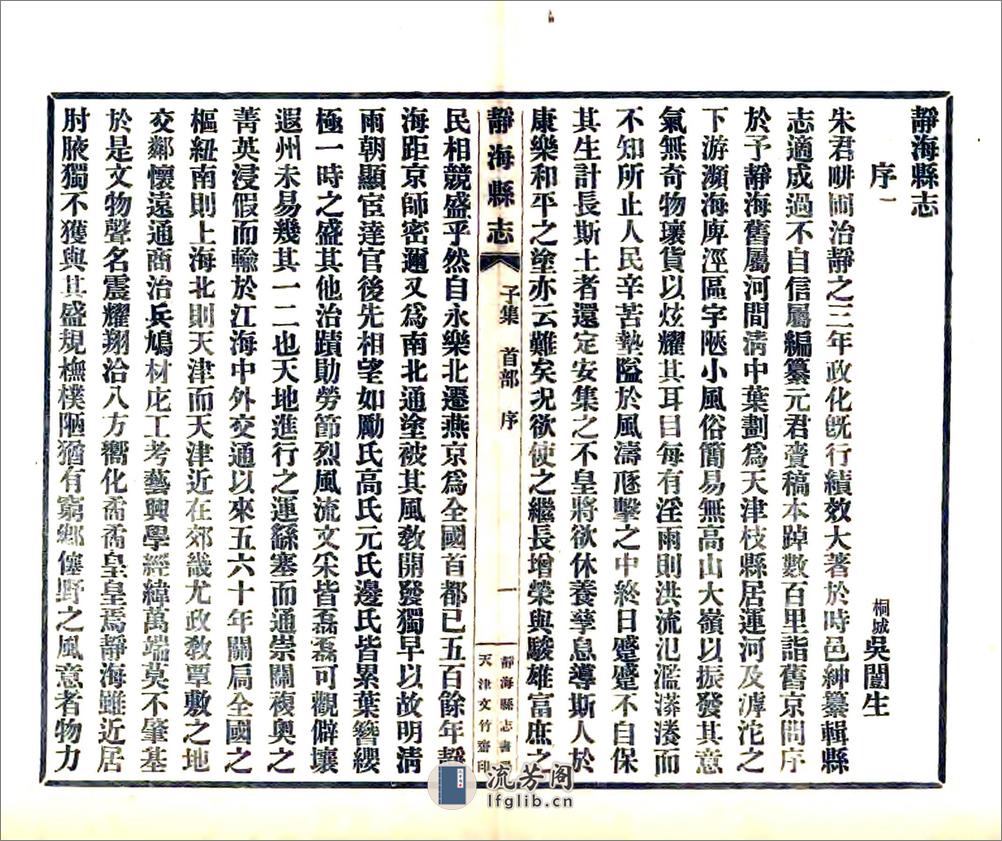 靜海縣志
序一
桐城吳闓生
朱君畊陌治靜之三年政化旣行績效大著於時邑紳纂輯縣
志適成過不自信屬編纂元君賫稿本踔數百里詣舊京問序
於予靜海舊屬河間淸中葉劃爲天津枝縣居運河及滹沱之
下游瀕海庳溼區宇陿小風俗簡易無高山大嶺以振發其意
氣無奇物瓌貨以炫耀其耳目每有淫雨則洪流氾濫漭瀁而
不知所止人民辛苦墊隘於風濤豗擊之中終日蹙蹙不自保
其生計長斯土者還定安集之不皇將欲休養孳息導斯人於
康樂和平之塗亦云難矣况欲使之繼長增榮與駿雄富庶之
靜海縣志 子集 首部 序 一
靜海縣志書局
天津文竹齋印
民相競盛乎然自永樂北遷燕京爲全國首都已五百餘年靜
海距京師密邇又爲南北通塗被其風敎開發獨早以故明淸
兩朝顯宦達官後先相望如勵氏高氏元氏邊氏皆累葉簪纓
極一時之盛其他治蹟勛勞節烈風流文采皆磊磊可觀僻壤
遐州未易幾其一二也天地進行之運繇塞而通崇關複奧之
菁英浸假而輸於江海中外交通以來五六十年關局全國之
樞紐南則上海北則天津而天津近在郊畿尤政敎覃敷之地
交鄰懷遠通商治兵鳩材庀工考藝興學經緯萬端莫不肇基
於是文物聲名震耀翔洽八方嚮化矞矞皇皇焉靜海雖近居
肘腋獨不獲與其盛規橅樸陋猶有窮鄉僿野之風意者物力
流芳阁
lfglib.cn